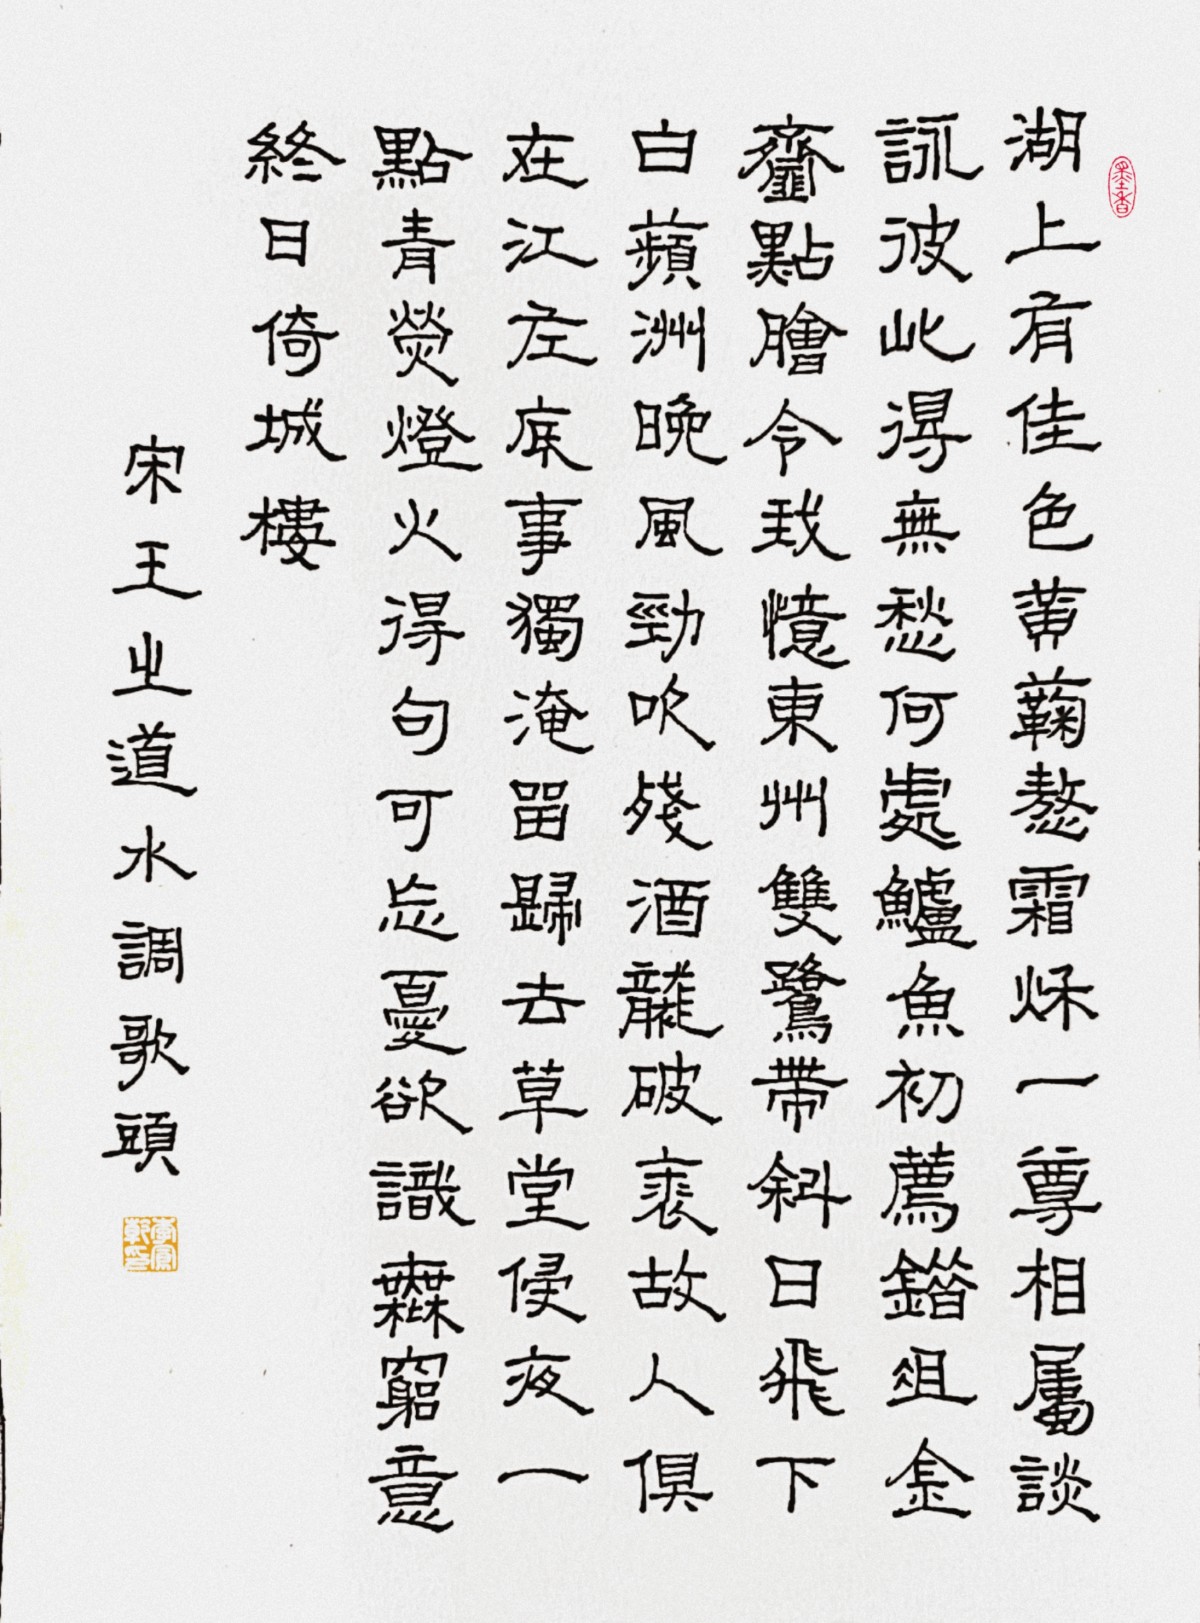 墨香
湖上有佳色黄蘜熬霜秌一尊相屬談
詠彼此得無愁何處鱸魚初薦鍇俎金
齏點膾令我憶東州雙鷺帶斜日飛下
白蘋洲晚風勁吹殘酒龍破裘故人俱
在江左底事獨淹留歸去草堂侵夜一
點青熒燈火得句可忘憂欲識無窮意
終日倚城樓
宋王之道水調歌頭